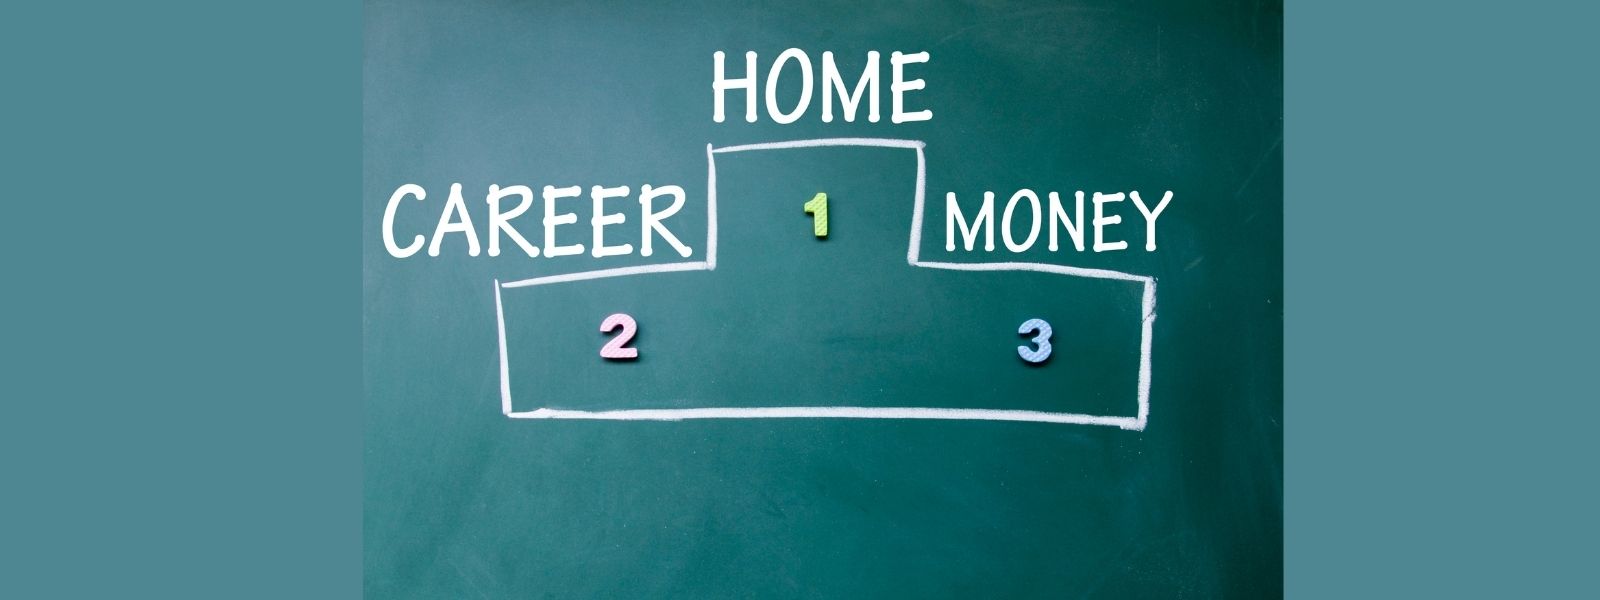 HOME
1
CAREER
MONEY
2
3